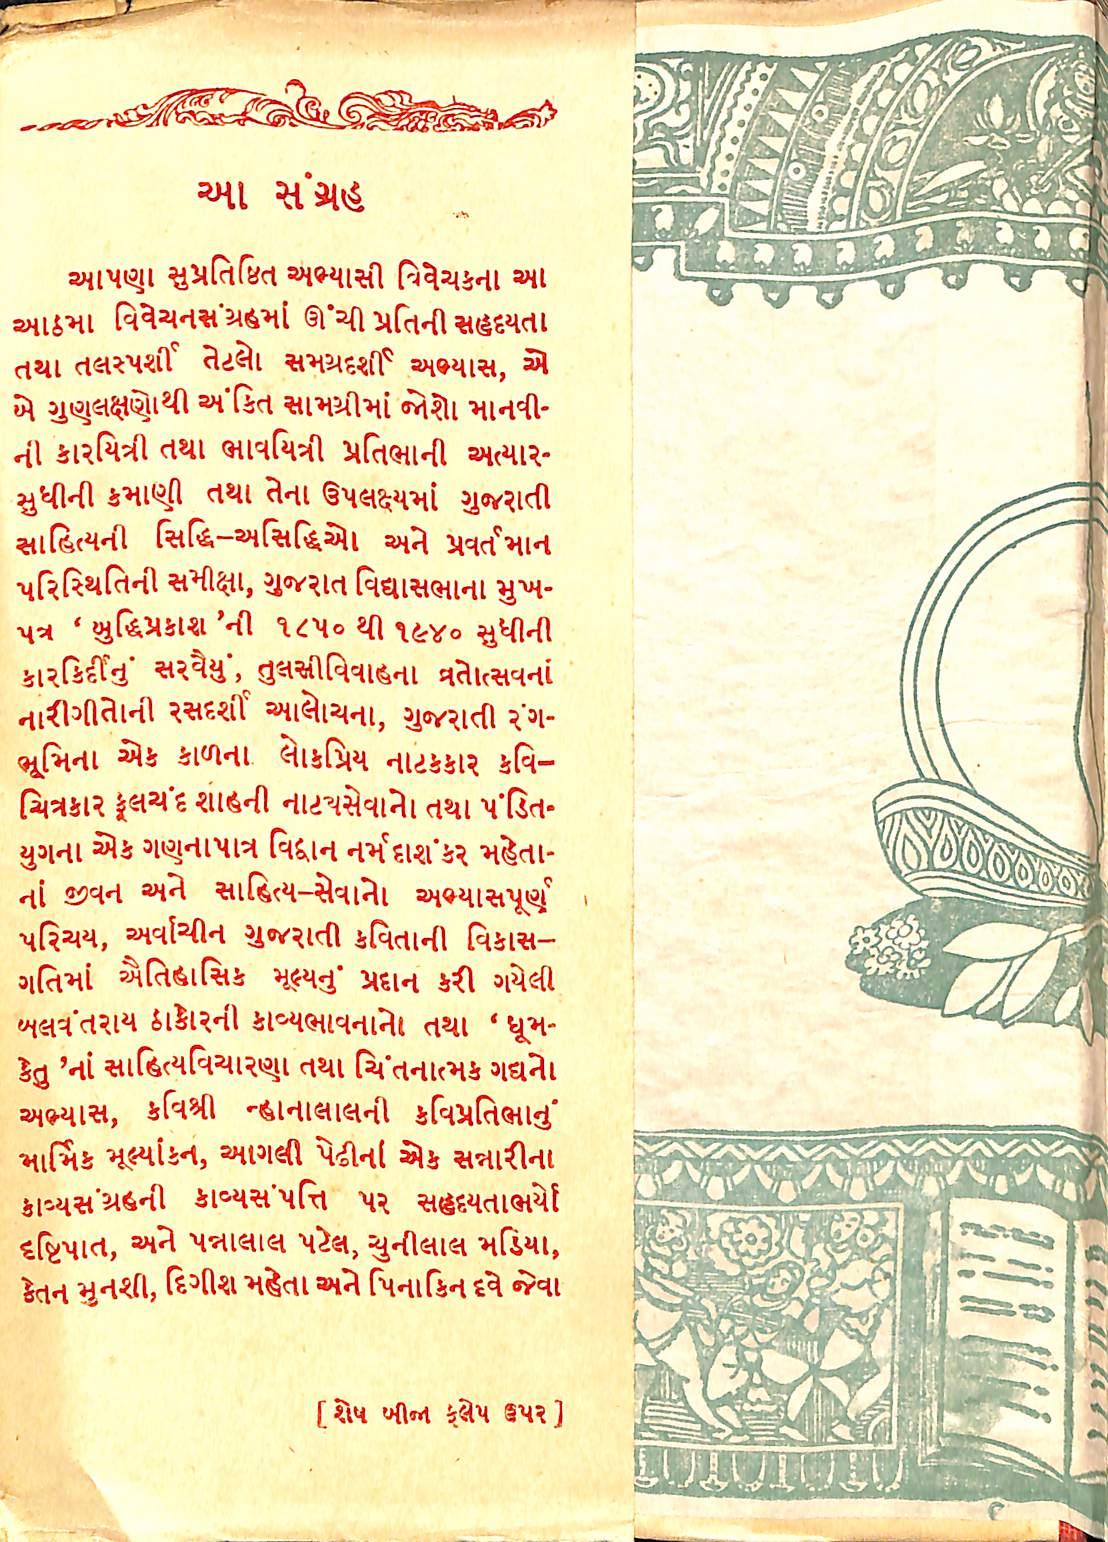 આ સંગ્રહ
આપણા સુપ્રતિષ્ઠિત અભ્યાસી વિવેચકના આ
આઠમા વિવેચનસંગ્રહમાં ઊંચી પ્રતિની સહૃદયતા
તથા તલસ્પર્શી તેટલો સમગ્રદર્શી અભ્યાસ, એ
બે ગુણલક્ષણોથી અંકિત સામગ્રીમાં જોશો માનવી-
ની કારયિત્રી તથા ભાવયિત્રી પ્રતિભાની અત્યાર-
સુધીની કમાણી તથા તેના ઉપલક્ષ્યમાં ગુજરાતી
સાહિત્યની સિદ્ધિ–અસિદ્ધિઓ અને પ્રવર્તમાન
પરિસ્થિતિની સમીક્ષા, ગુજરાત વિદ્યાસભાના મુખ-
પત્ર ‘બુદ્ધિપ્રકાશ’ની ૧૮૫૦ થી ૧૯૪૦ સુધીની
કારકિર્દીનું સરવૈયું, તુલસીવિવાહના વ્રતોત્સવનાં
નારીગીતોની રસદર્શી આલોચના, ગુજરાતી રંગ-
ભૂમિના એક કાળના લોકપ્રિય નાટકકાર કવિ–
ચિત્રકાર ફૂલચંદ શાહની નાટ્યસેવાનો તથા પંડિત-
યુગના એક ગણનાપાત્ર વિદ્વાન નર્મદાશંકર મહેતા-
નાં જીવન અને સાહિત્ય–સેવાનો અભ્યાસપૂર્ણ
પરિચય, અર્વાચીન ગુજરાતી કવિતાની વિકાસ–
ગતિમાં ઐતિહાસિક મૂલ્યનું પ્રદાન કરી ગયેલી
બલવંતરાય ઠાકોરની કાવ્યભાવનાનો તથા ‘ધૂમ-
કેતુ’નાં સાહિત્યવિચારણા તથા ચિંતનાત્મક ગદ્યનો
અભ્યાસ, કવિશ્રી ન્હાનાલાલની કવિપ્રતિભાનું
માર્મિક મૂલ્યાંકન, આગલી પેઢીનાં એક સન્નારીના
કાવ્યસંગ્રહની કાવ્યસંપત્તિ પર સહૃદયતાભર્યો
દૃષ્ટિપાત, અને પન્નાલાલ પટેલ, ચુનીલાલ મડિયા,
કેતન મુનશી, દિગીશ મહેતા અને પિનાકિન દવે જેવા
[ શેષ બીજા ફ્લેપ ઉપર ]